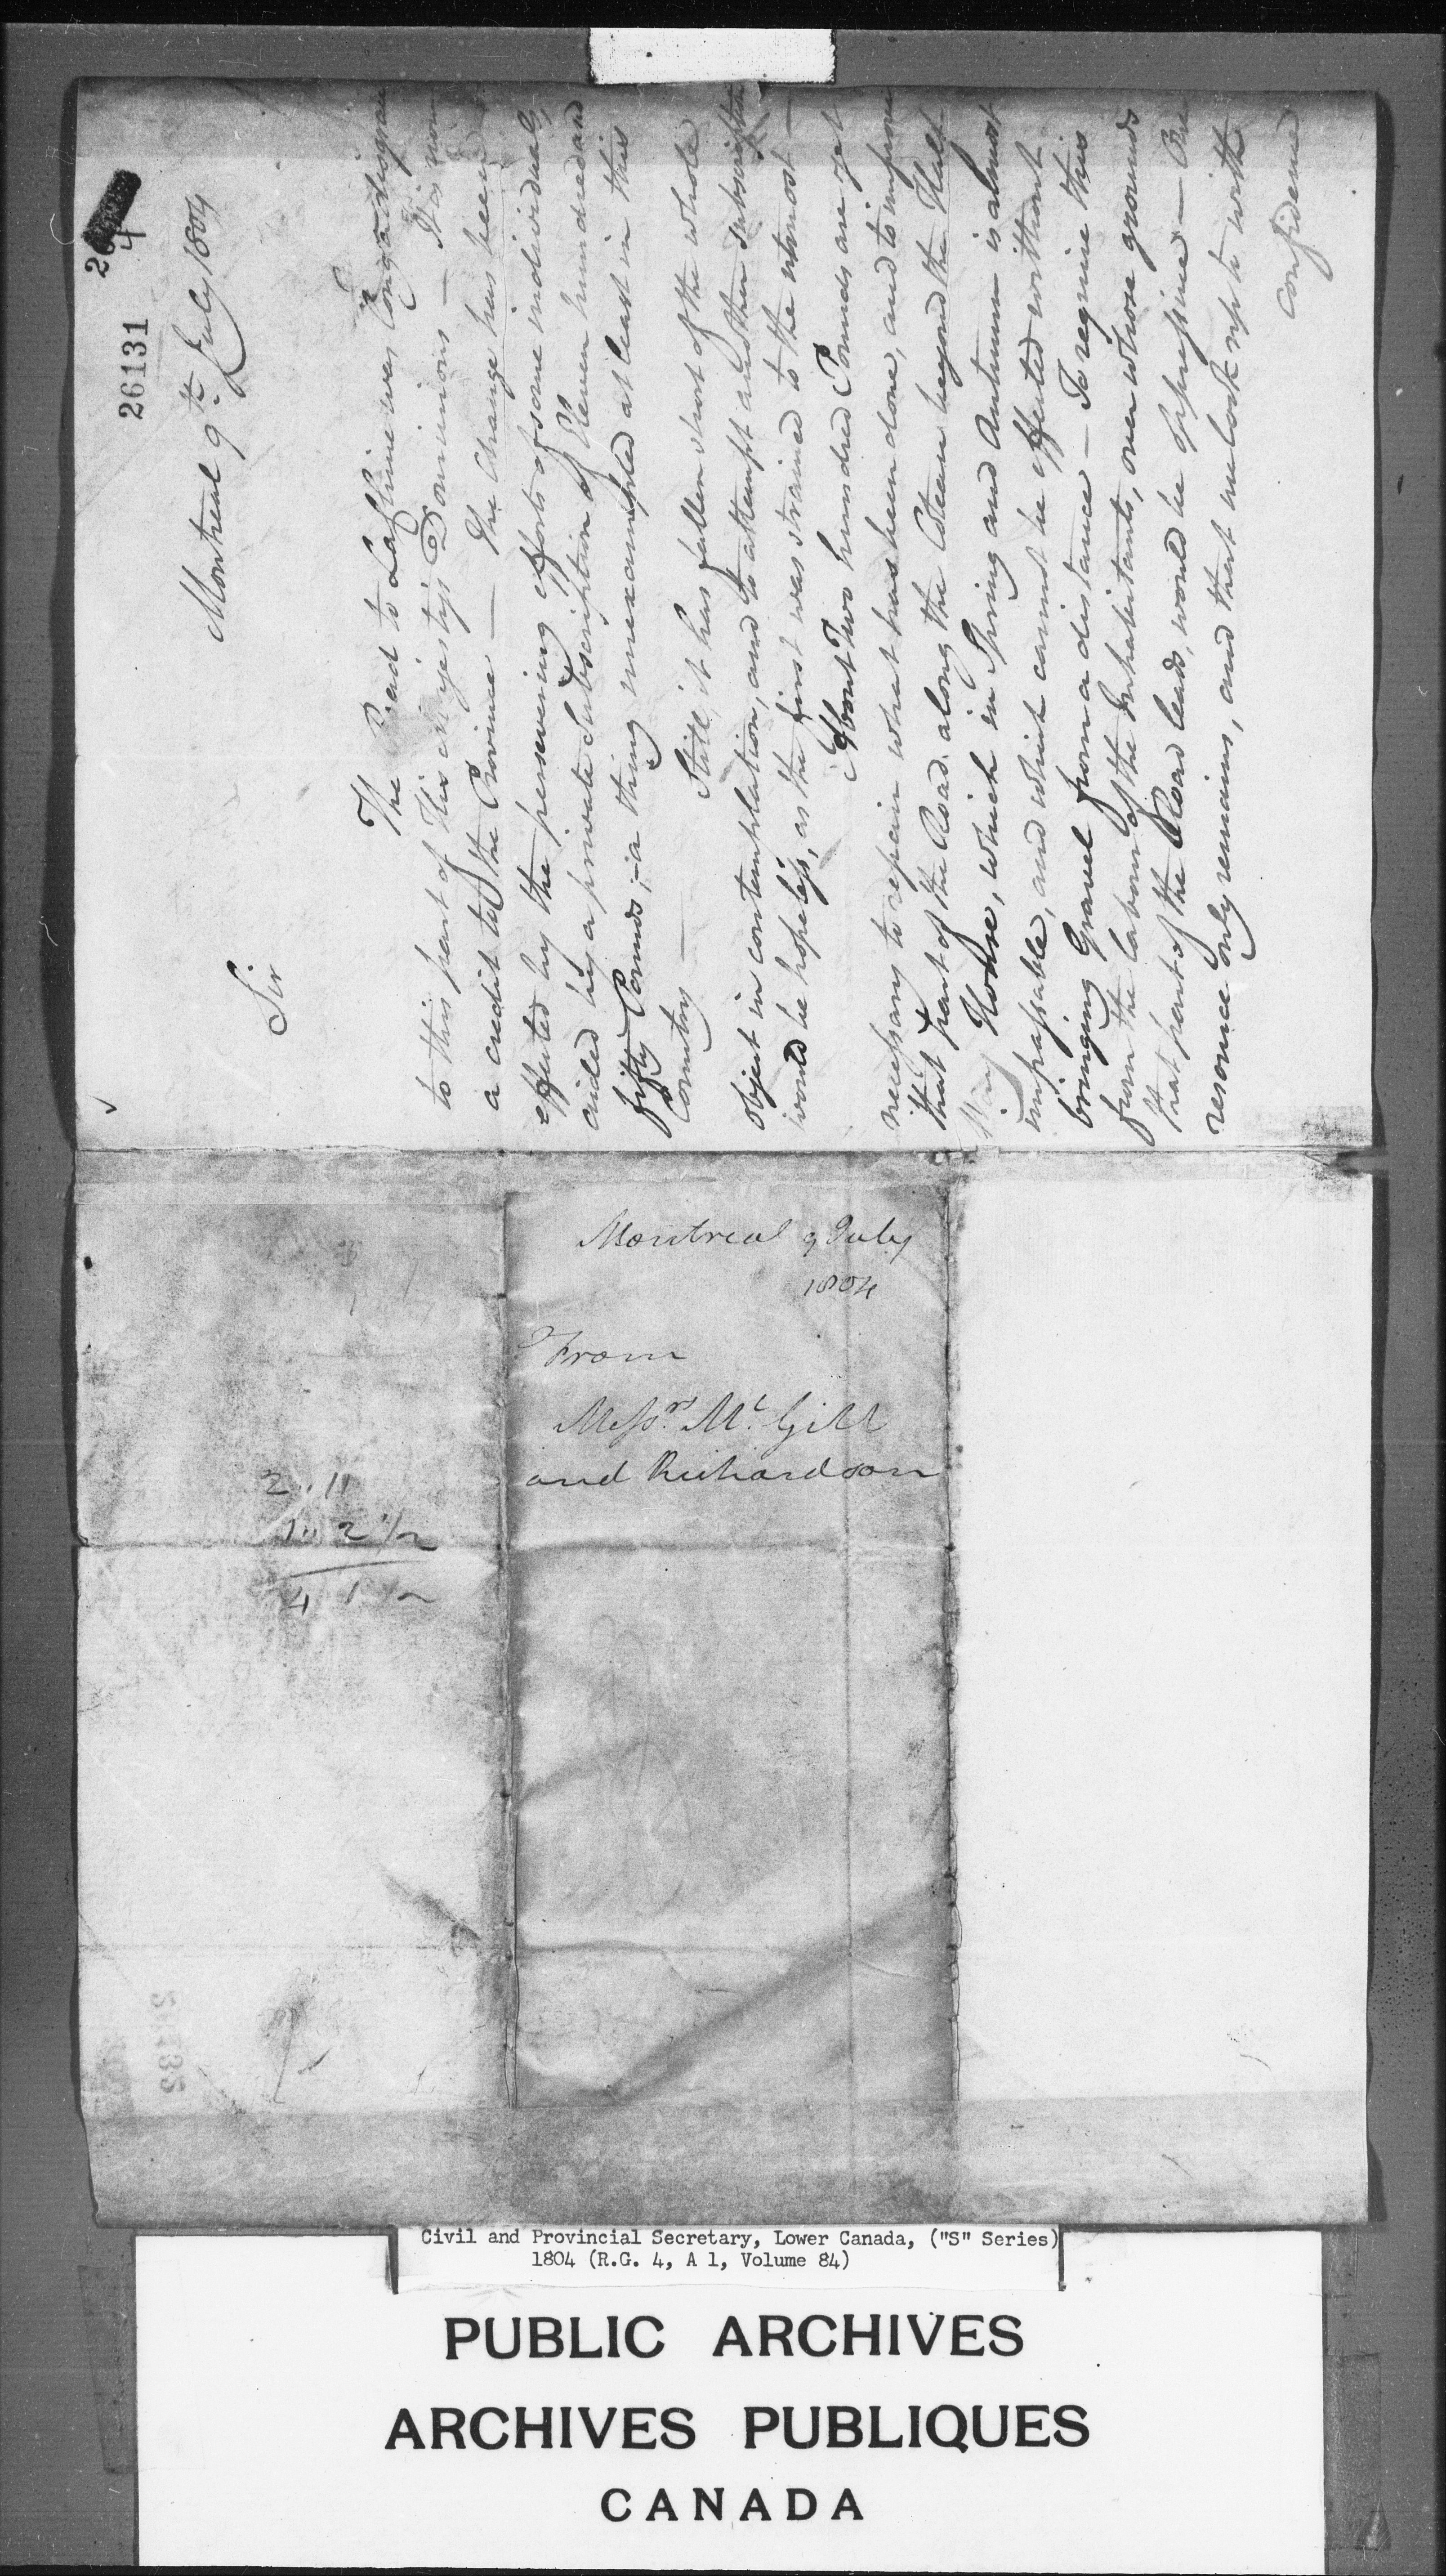 26131
4
Montreal 9th July 1804
Sir
The Road to La Chine was long a disgrace
to this part of His Majesty's Dominions — It is now
a credit to the Province — The Change has been
effected by the persevering efforts of some individuals,
aided by a private Subscription of Eleven hundred and
fifty Pounds; – a thing unexampled at least in this
Country —
Still, it has fallen short of the whole
object in contemplation, and to attempt another subscription
would be hopeless, as the first was strained to the utmost —
About Two hundred Pounds are yet
necessary to repair what has been done, and to improve
that part of the Road along the Coteau beyond the Half
Way House, which in Spring and Autumn is almost
impassable, and which cannot be effected without
bringing Gravel from a distance — To require this
from the labour of the Inhabitants, over whose grounds
that part of the Road leads, would be oppressive — One
resource only remains, and that we look up to with
confidence
Montreal 9 July
1804
From
Messrs. McGill
and Richardson
2.11
1.. 2 1/2
4 1 1/2
Civil and Provincial Secretary, Lower Canada, ("S" Series)
1804 (R.G. 4, A 1, Volume 84)
PUBLIC ARCHIVES
ARCHIVES PUBLIQUES
CANADA